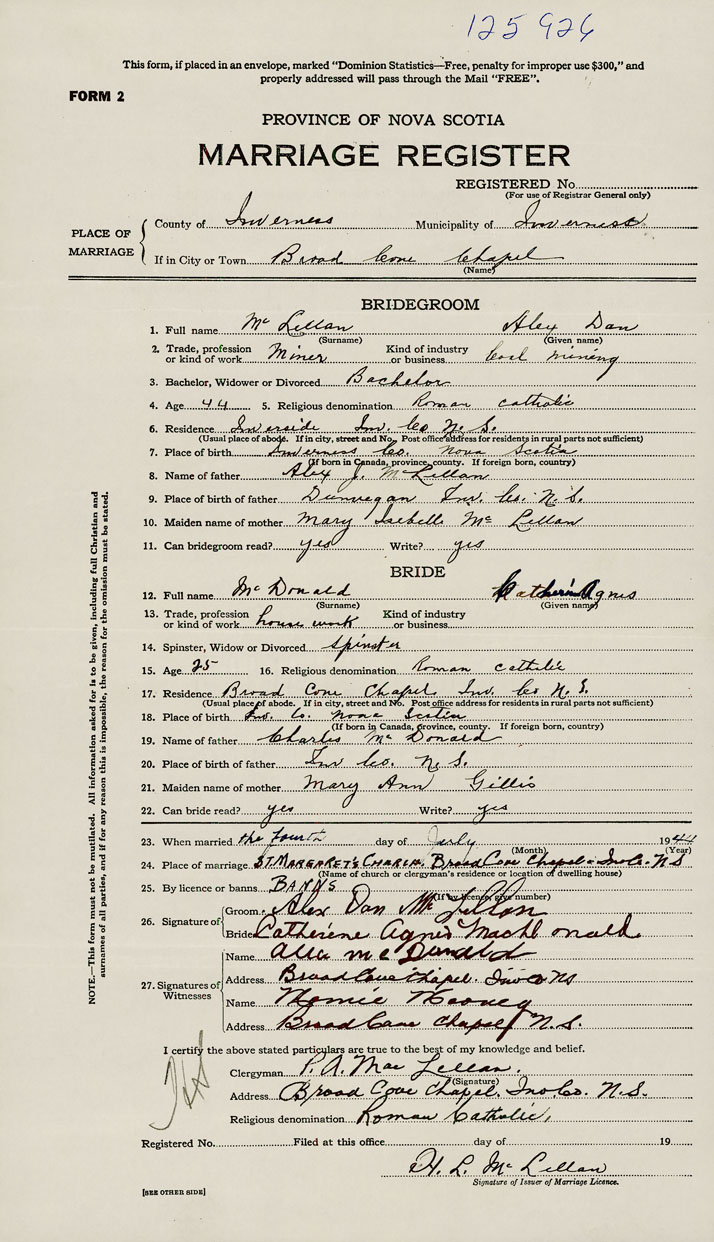 125926
This form, if placed in an envelope, marked "Dominion Statistics—Free, penalty for improper use $300," and
properly addressed will pass through the Mail "FREE".
FORM 2
PROVINCE OF NOVA SCOTIA
MARRIAGE REGISTER
REGISTERED No.
(For use of Registrar General only)
PLACE OF MARRIAGE
County of Inverness Municipality of Inverness
If in City or Town Broad Cove Chapel
(Name)
BRIDEGROOM
1. Full name Mc Lellan Alex Dan
(Surname) (Given name)
2. Trade, profession or kind of work Miner Kind of industry or business Coal mining
3. Bachelor, Widower or Divorced Bachelor
4. Age 44 5. Religious denomination Roman catholic
6. Residence Inverside Inv. Co N. S.
(Usual place of abode. If in city, street and No. Post office address for residents in rural parts not sufficient)
7. Place of birth Inverness Co. Nova Scotia
(If born in Canada, province, county. If foreign born, country)
8. Name of father Alex J. McLellan
9. Place of birth of father Dunvegan Inv. Co. N. S.
10. Maiden name of mother Mary Isabelle Mc Lellan
11. Can bridegroom read? yes Write? yes
BRIDE
12. Full name McDonald Catherin Agnis
(Surname) (Given name)
13. Trade, profession or kind of work house work Kind of industry or business
14. Spinster, Widow or Divorced Spinster
15. Age 25 16. Religious denomination Roman catholic
17. Residence Broad Cove Chapel Inv. Co N. S.
(Usual place of abode. If in city, street and No. Post office address for residents in rural parts not sufficient)
18. Place of birth Inv. Co. Nova Scotia
(If born in Canada, province, county. If foreign born, country)
19. Name of father Charles Mc Donald
20. Place of birth of father Inv Co. N. S.
21. Maiden name of mother Mary Ann Gillis
22. Can bride read? yes Write? yes
23. When married the fourth day of July 1944
(Month) (Year)
24. Place of marriage ST MARGARET'S CHURCH, Broad Cove Chapel - Inv Co - N S
(Name of church or clergyman's residence or location of dwelling house)
25. By licence or banns BANNS
(If by licence, give number)
26. Signature of Groom Alex Dan McLellan
Bride Catherine Agnes MacDonald
27. Signatures of Witnesses
Name McDonald
Address Broad Cove Chapel. Inv Co NS
Name Mooney
Address Broad Cove Chapel N. S.
I certify the above stated particulars are true to the best of my knowledge and belief.
Clergyman P. A. Mac Lellan.
(Signature)
Address Broad Cove Chapel. Inv. Co. N. S.
Religious denomination Roman Catholic.
Registered No. Filed at this office day of 19
H. L. McLellan
Signature of Issuer of Marriage Licence.
[SEE OTHER SIDE]
NOTE.—This form must not be mutilated. All information asked for is to be given, including full Christian and
surnames of all parties, and if for any reason this is impossible, the reason for the omission must be stated.